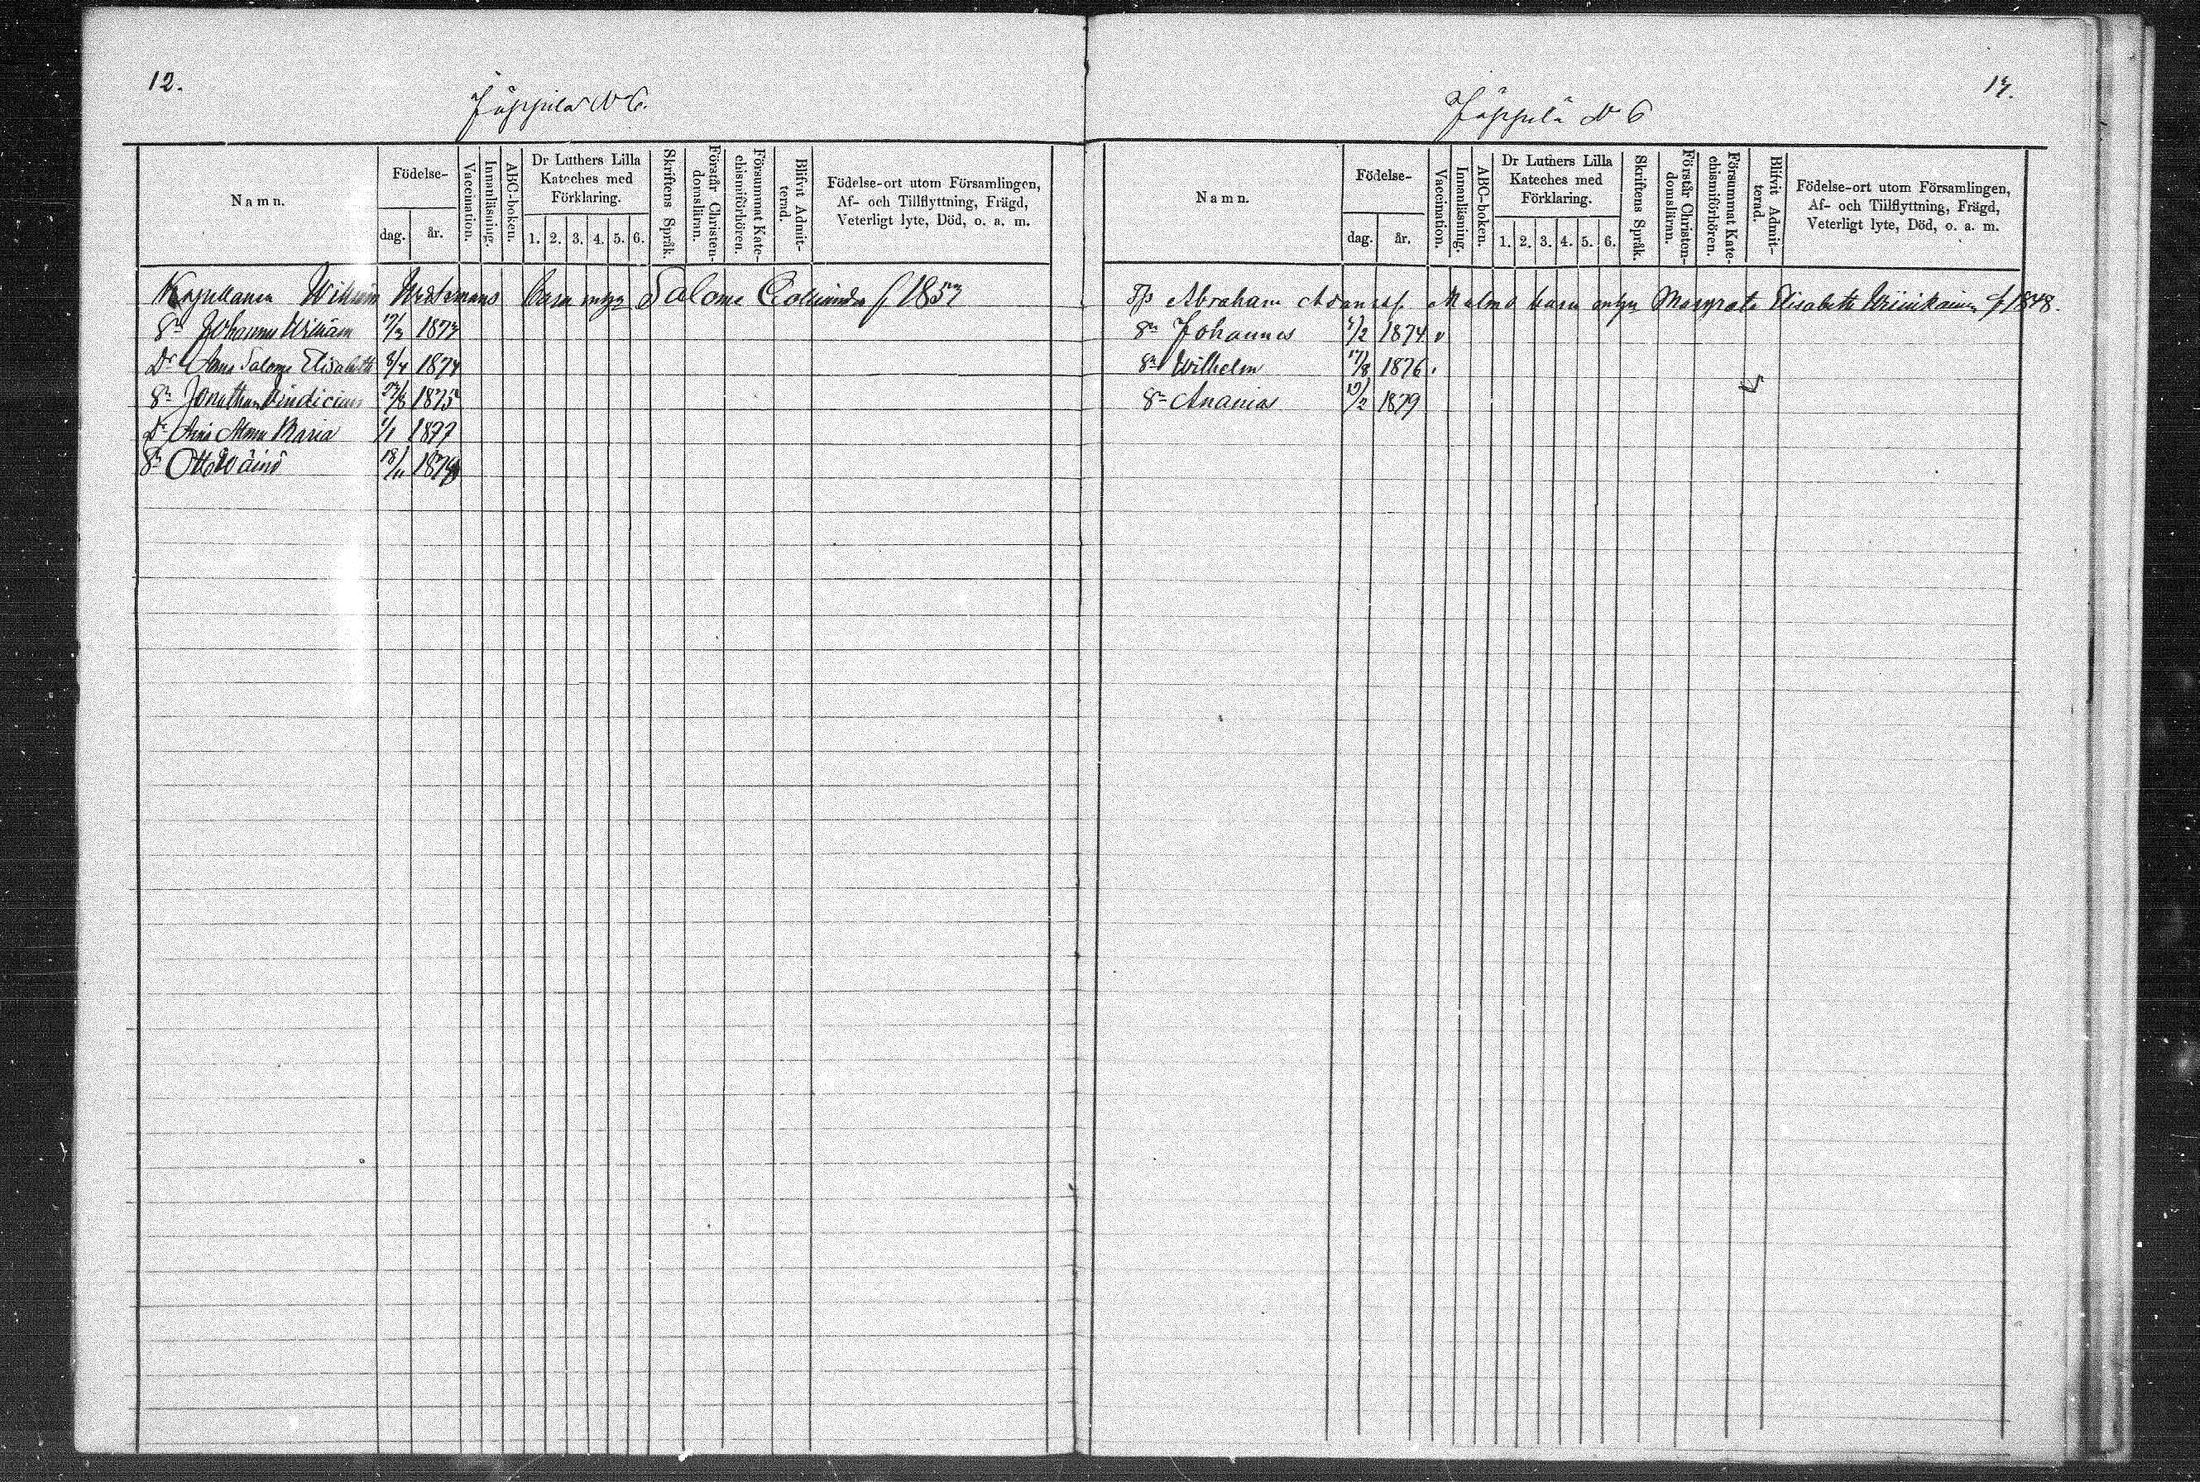 12.
Jäppilä N 6.
Namn.
Födelse-
dag. år.
Vaccination.
Innanläsning.
ABC-boken.
Dr Luthers Lilla Kateches med Förklaring.
1. 2. 3. 4. 5. 6.
Skriftens Språk.
Förstår Christen-domslärän.
Försummat Kate-chismiförhören.
Blifvit Admit-terad.
Födelse-ort utom Församlingen,
Af- och Tillflyttning, Frägd,
Veterligt lyte, Död, o. a. m.
Kapellanen Wilhelm Westrmans barn Salome f 1853
Sn Johannes William 17/3 1873
Dr Anna Salome Elisabeth 8/4 1874
Sn Jonathan Vindicius 1875
Dr Aina Alma Maria 1/1 1877
Sn Otto Wäinö 18/11 1878
13.
Jäppilä N 6
Namn.
Födelse-
dag. år.
Vaccination.
Innanläsning.
ABC-boken.
Dr Luthers Lilla Kateches med Förklaring.
1. 2. 3. 4. 5. 6.
Skriftens Språk.
Förstår Christen-domslärän.
Försummat Kate-chismiförhören.
Blifvit Admit-terad.
Födelse-ort utom Församlingen,
Af- och Tillflyttning, Frägd,
Veterligt lyte, Död, o. a. m.
Abraham Adamsf. Malmb barn Margreta Elisabeth f 1848.
Sn Johannes 1874
Sn Wilhelm 17/8 1876
Sn Ananias 19/2 1879